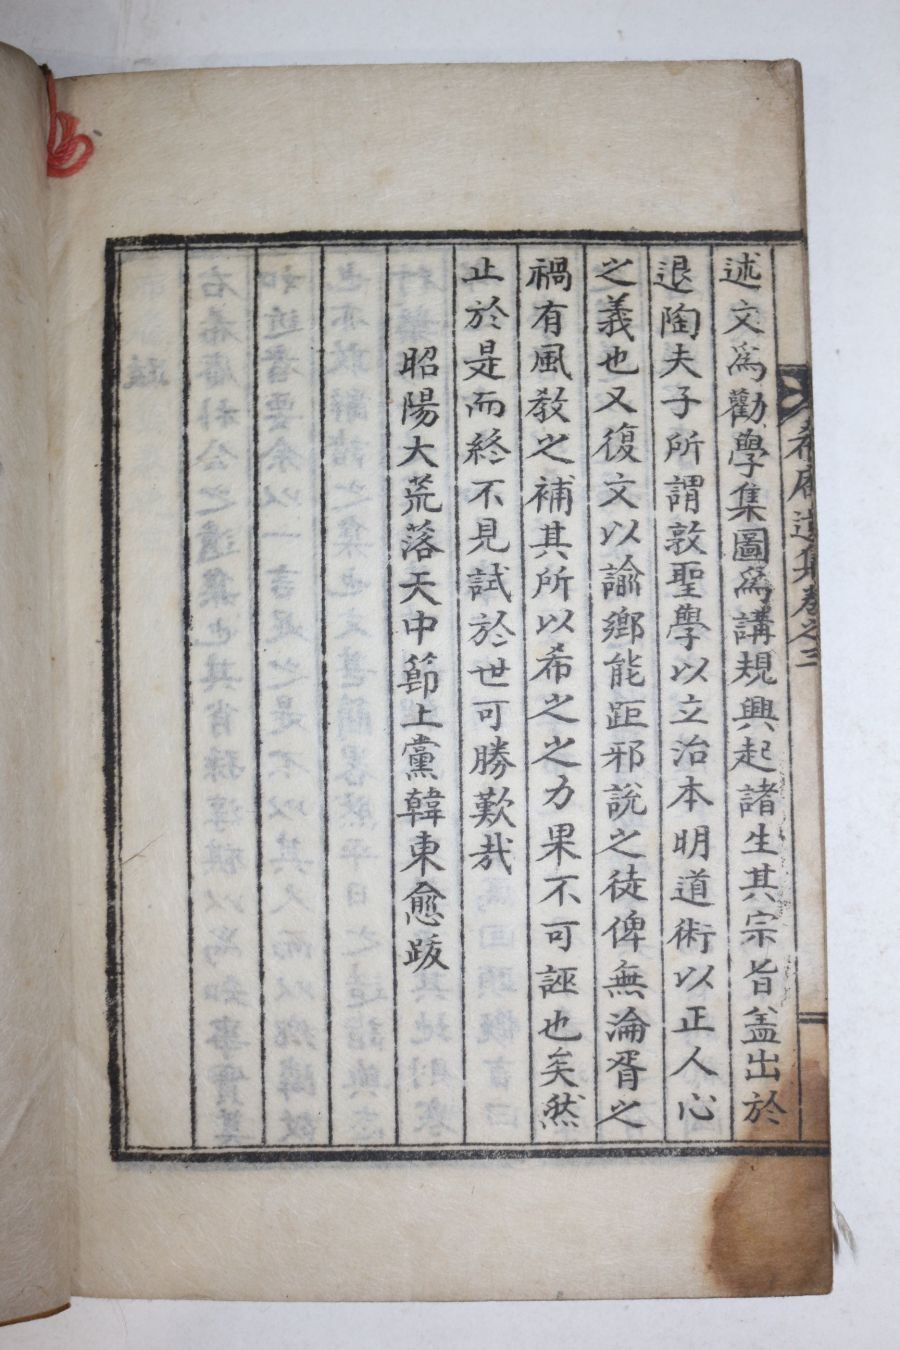 述文爲勸學集圖爲講規興起諸生其宗旨盖出於
退陶夫子所謂敦聖學以立治本明道術以正人心
之義也又復文以諭鄉能距邪說之徒俾無淪胥之
禍有風敎之補其所以希之之力果不可誣也矣然
止於是而終不見試於世可勝歎哉
昭陽大荒落天中節上黨韓東愈跋
希庵遺集卷之三